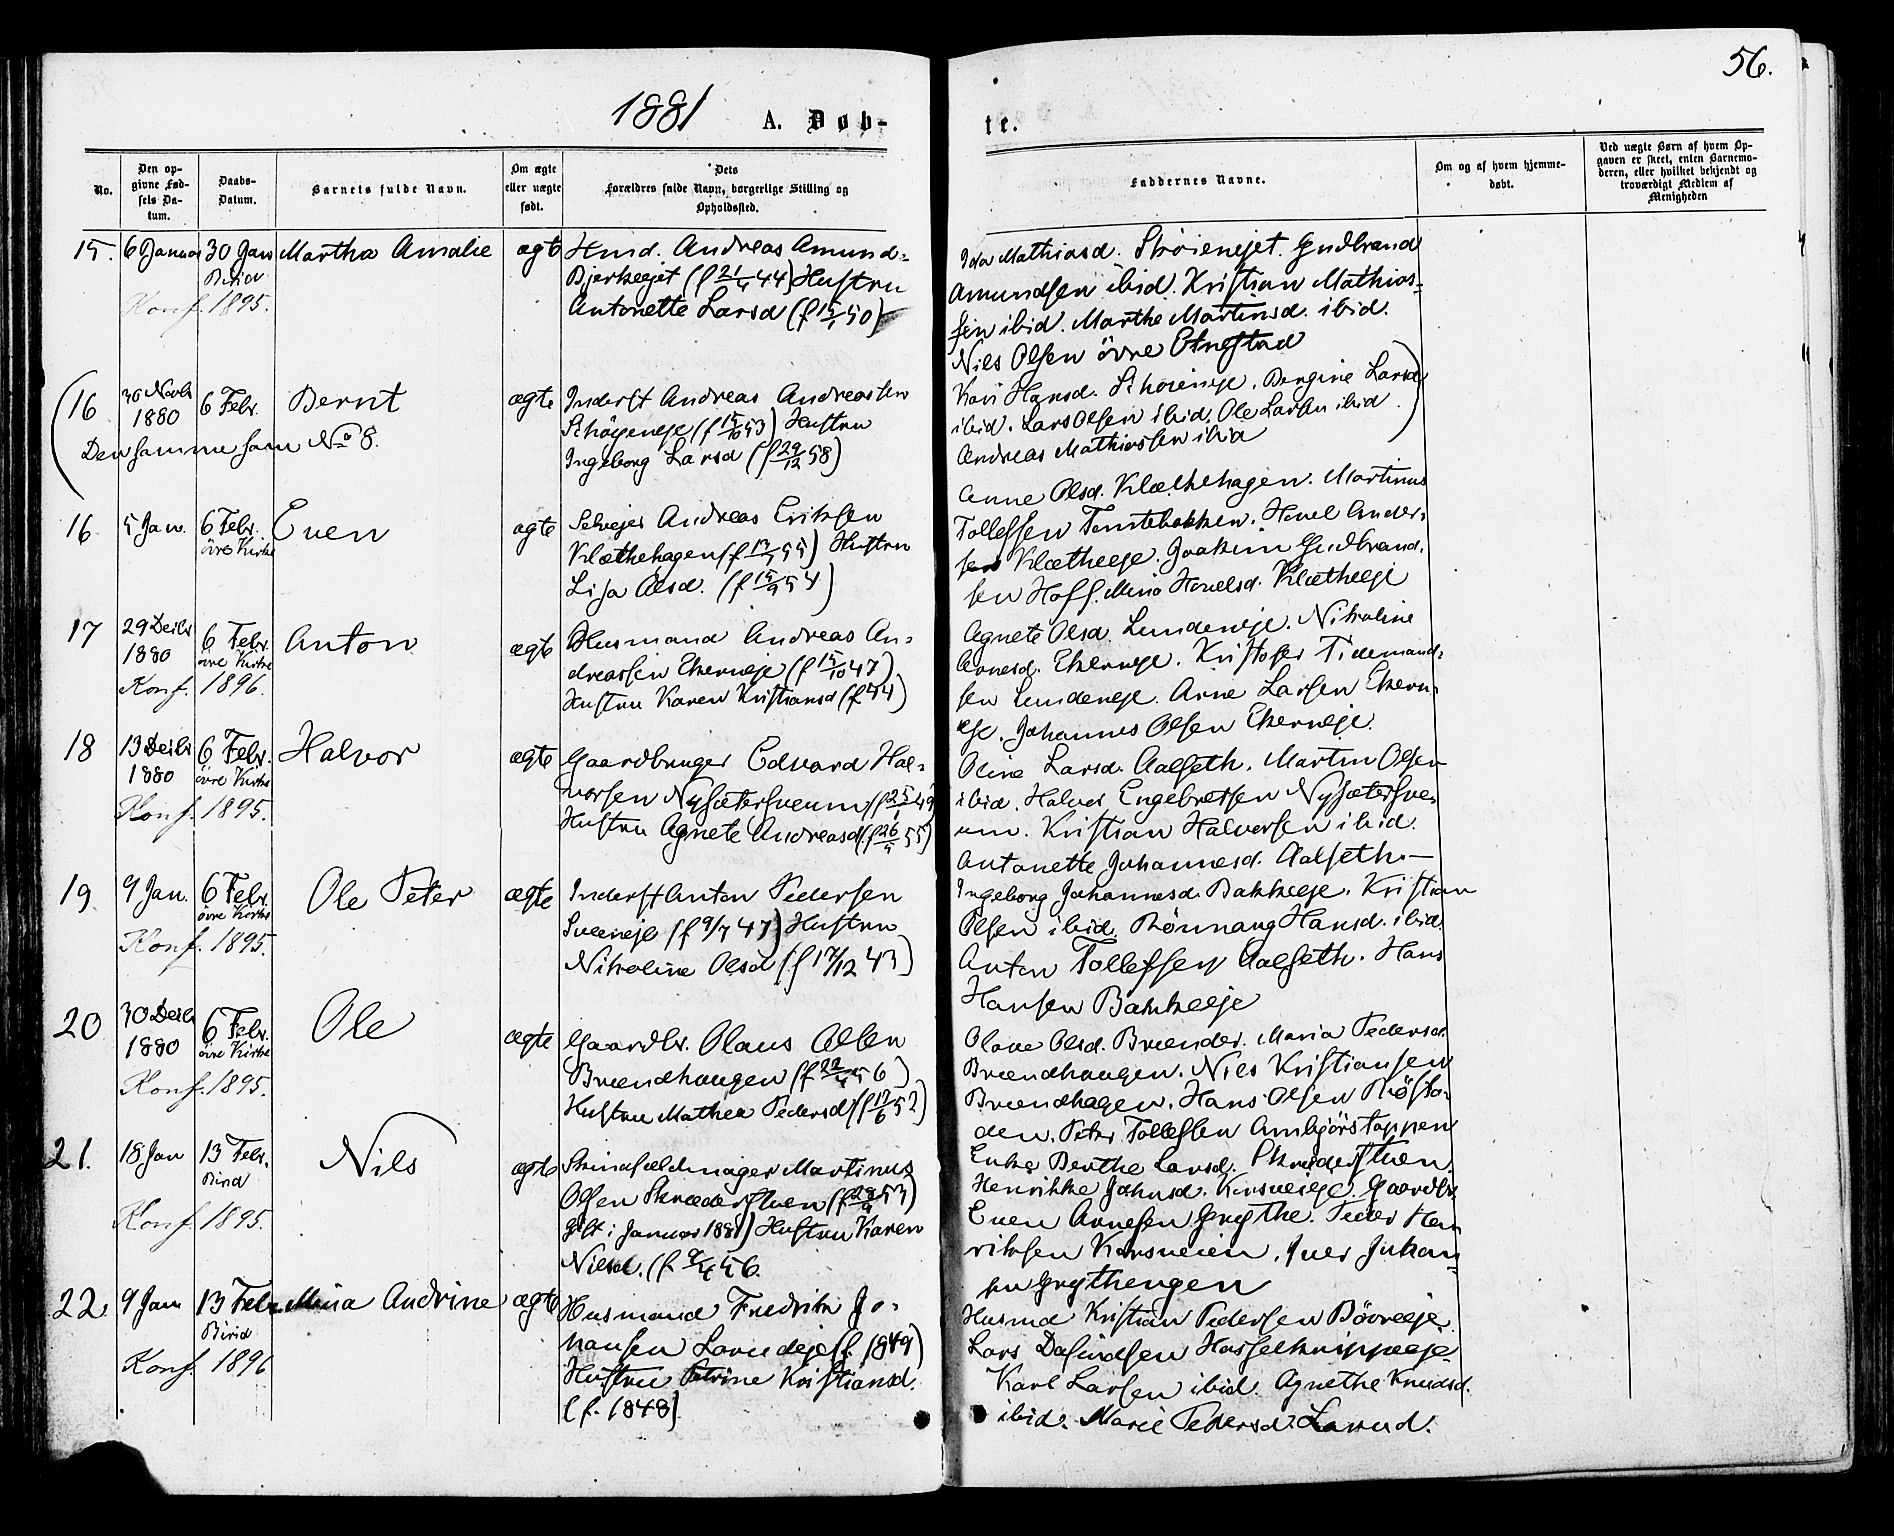 56.
1881 A. Døb- te.
No.
Den op-
givne Fød-
sels Da-
tum.
Daabs-
Datum.
Barnets fulde Navn.
Om ægte
eller uægte
født.
Dets
Forældres fulde Navn, borgerlige Stilling og
Opholdssted.
Faddernes Navne.
Om og af hvem hjemme-
døbt.
Ved uægte Børn af hvem Op-
gaven er skeet, enten Barnemo-
deren, eller hvilket bekjendt og
troværdigt Medlem af
Menigheden
15. 6 Januar 30 Jan Martha Amalie ægte
Birid
Konf. 1895.
Husmd. Andreas Amund-
Bjerkeejet (f 21/4 44) Hustru
Antonette Larsd (f 15/1 50)
Ida Mathiasd. Strøienejet. Gudbrand
Amundsen ibid. Kristian Mathias-
sen ibid. Marthe Martinsd. ibid.
Niels Olsen övre Elnestad
16 30 Novbr 1880 6 Febr. Bernt ægte
Den samme som No 8.
Inderst Andreas Andreassen
(f 15/10 53) Hustru
Ingeborg Larsd (f 29/12 58)
Kari Hansd. Bergine Larsd
ibid. Lars Olsen ibid. Ole Larsen ibid.
Andreas Mathiassen ibid
16 5 Jan. 6 Febr. Even ægte
övre Kirke
Selvejer Andreas Eriksen
Klæthehagen (f 13/7 55) Hustru
Lisa Olsd. (f 15/9 54)
Anne Olsd. Klæthehagen. Martinus
Tollefsen Tomtebakken. Hovel Ander-
sen Klætheeje. Joakim Gudbrand-
sen Hoff. Mina Hovelsd. Klætheeje
17 29 Decbr 1880 6 Febr. Anton ægte
övre Kirke
Konf. 1896.
Husmand Andreas An-
dreassen Ekerneje (f 15/10 47)
Hustru Karen Kristiansd (f 44)
Agnete Olsd. Lundeneje. Nikoline
Arnesd. Ekerneje. Kristofer Tidemand-
sen Lundeneje. Arne Larsen Ekern-
eje. Johannes Olsen Ekerneje.
18 13 Decbr 1880 6 Febr. Halvor ægte
övre Kirke
Konf. 1895.
Gaardbruger Edvard Hal-
vorsen Nysætersveum (f 25/1 49)
Hustru Agnete Andreasd (f 26/9 55)
Oline Larsd. Aalseth. Martin Olsen
ibid. Halvor Engebretsen Nysætersve-
um. Kristian Halvorsen ibid.
Antonette Johannesd. Aalseth.—
19 9 Jan. 6 Febr. Ole Peter ægte
övre Kirke
Konf. 1895.
Inderst Anton Pedersen
Sveeneje (f 9/7 47) Hustru
Nikoline Olsd (f 17/12 43)
Ingeborg Johannesd. Bakkeeje. Kristian
Olsen ibid. Rönnaug Hansd. ibid.
Anton Tollefsen Aalseth. Hans
Hansen Bakkeeje
20 30 Decbr 1880 6 Febr. Ole ægte
övre Kirke
Konf. 1895.
Gaardbr. Olaus Olsen
Brændhaugen (f 22/4 56)
Hustru Mathea Pedersd (f 17/6 52)
Olave Olsd. Brænder. Maria Pedersd.
Brændhaugen. Niels Kristiansen
Brændhagen. Hans Olsen Rösto-
den. Peter Tollefsen Ambjörstoppen
21. 18 Jan 13 Febr. Nils ægte
Birid
Konf. 1895.
Skindfældmager Martinus
Olsen Skræderstuen (f 28/9 53)
Gift i Januar 1881) Hustru Karen
Nielsd. 56.
Enke Berthe Larsd. Skræderstuen.
Henrikke Johnsd. Korsveieje. Gaardbr.
Even Arnesen Grythe. Peder Hen-
riksen Korsveien. Iver Johan-
sen Grythengen
22. 9 Jan 13 Febr. Mina Andrine ægte
Birid
Konf. 1896
Husmand Fredrik Jo-
hansen Larudeje (f. 1849)
Hustru Petrine Kristiansd.
(f. 1848)
Husmd Kristian Pedersen Bövreeje.
Lars Dafindsen Hasselknippeeje.
Karl Larsen ibid. Agnethe Knudsd.
ibid. Marie Pedersd. Larud.